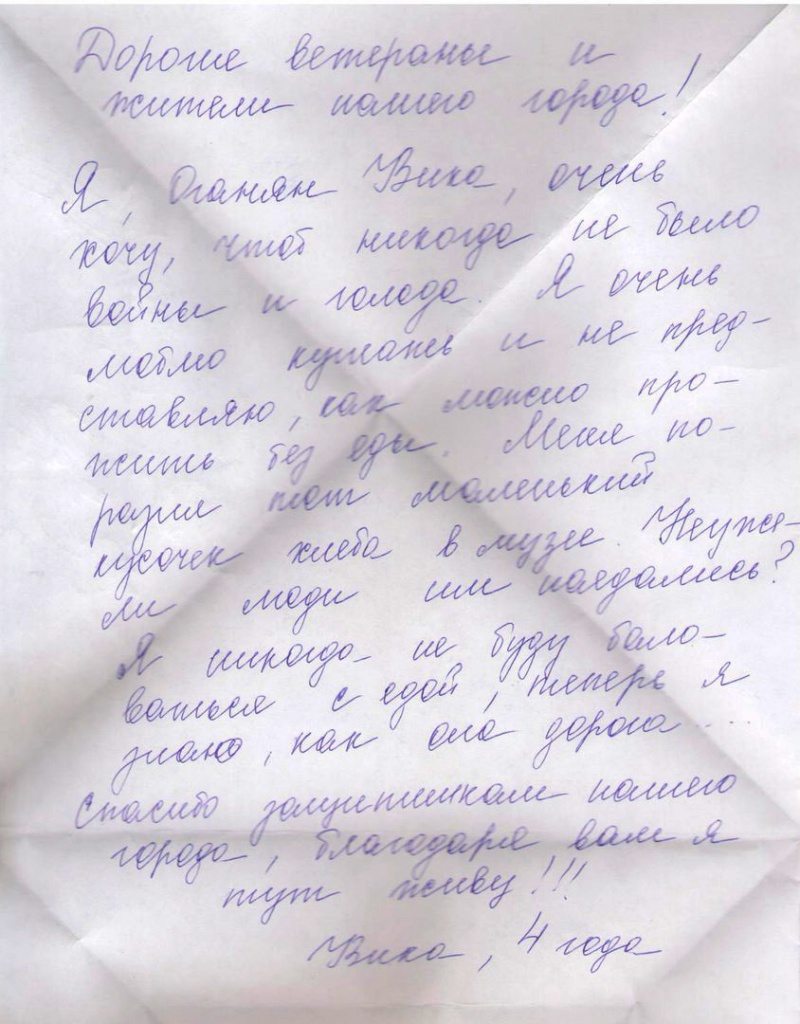 Дорогие ветераны и
жители нашего города!
Я, Оганян Вика, очень
хочу, чтоб никогда не было
войны и голода. Я очень
люблю кушать и не пред-
ставляю, как можно про-
жить без еды. Меня по-
разил тот маленький
кусочек хлеба в музее. Неуже-
ли люди им наедались?
Я никогда не буду бало-
ваться с едой, теперь я
знаю, как она дорога ...
Спасибо защитникам нашего
города, благодаря вам я
тут живу!!!
Вика, 4 года